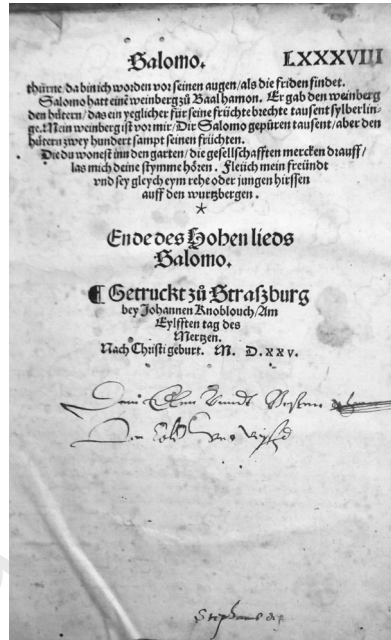 Salomo. LXXXVIII
thürne da bin ich worden vor seinen augen/als die friden findet.
Salomo hatt eine weinberg zů Baal hamon. Er gab den weinberg
den hütern/das ein yeglicher für seine früchte brechte tausent sylberlin-
ge. Mein weinberg ist vor mir/Dir Salomo gepüren tausent/aber den
hütern zwey hundert sampt seinen früchten.
Die du wonest inn den garten/die gesellschafften mercken drauff/
las mich deine stymme hören. Fleüch mein freündt
vnd sey gleych eym rehe oder jungen hirssen
auff den wurtzbergen.
*
Ende des Hohen lieds
Salomo.
¶ Getruckt zů Straszburg
bey Johannen Knoblouch/Am
Eylfften tag des
Mertzen.
Nach Christi geburt. M. D. xxv.